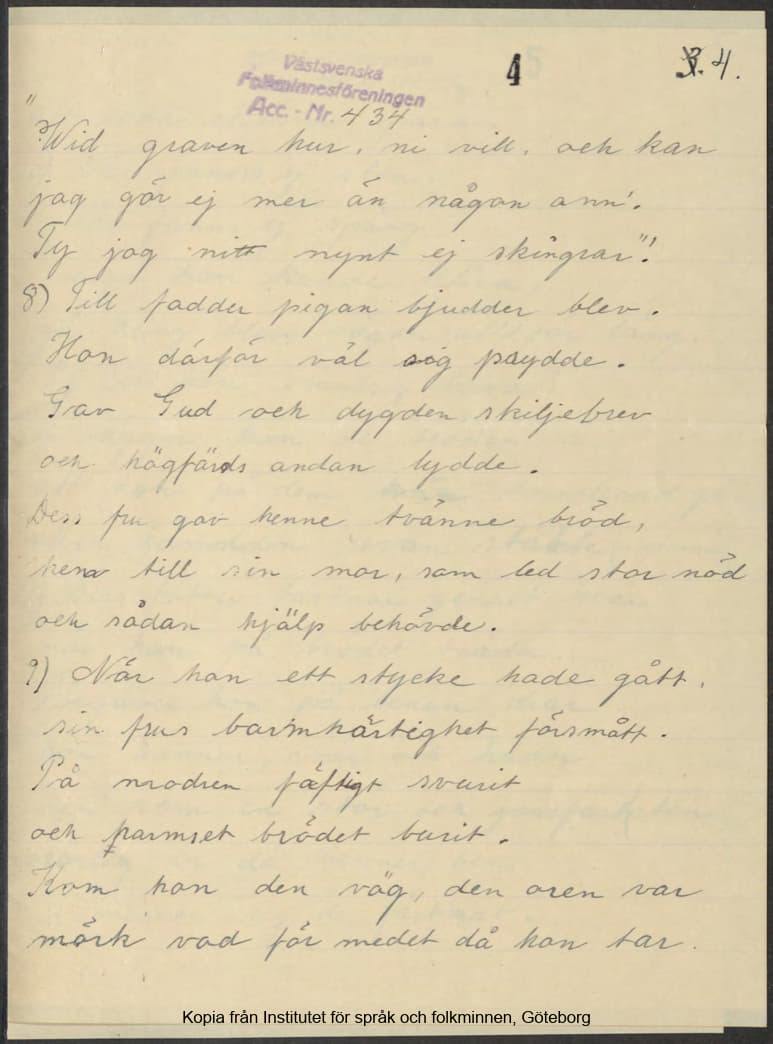 Västsvenska
Folkminnesföreningen
Acc. - Nr. 434
4
3. 4.
"Wid graven hur, ni vill, och kan
jag gör ej mer än någon ann'.
Ty jag mitt mynt ej skingrar"!
8) Till fadder pigan bjudder blev.
Hon därför väl sig prydde.
Gav Gud och dygden skiljebrev
och högfärds andan lydde.
Dess fru gav henne tvänne bröd,
hem till sin mor, som led stor nöd
och sådan hjälp behövde.
9) När hon ett stycke hade gått,
sin frus barmhärtighet försmått.
På modren häftigt svurit
och harmset brödet burit.
Kom hon den väg, den oren var
märk vad för medel då hon tar.
Kopia från Institutet för språk och folkminnen, Göteborg